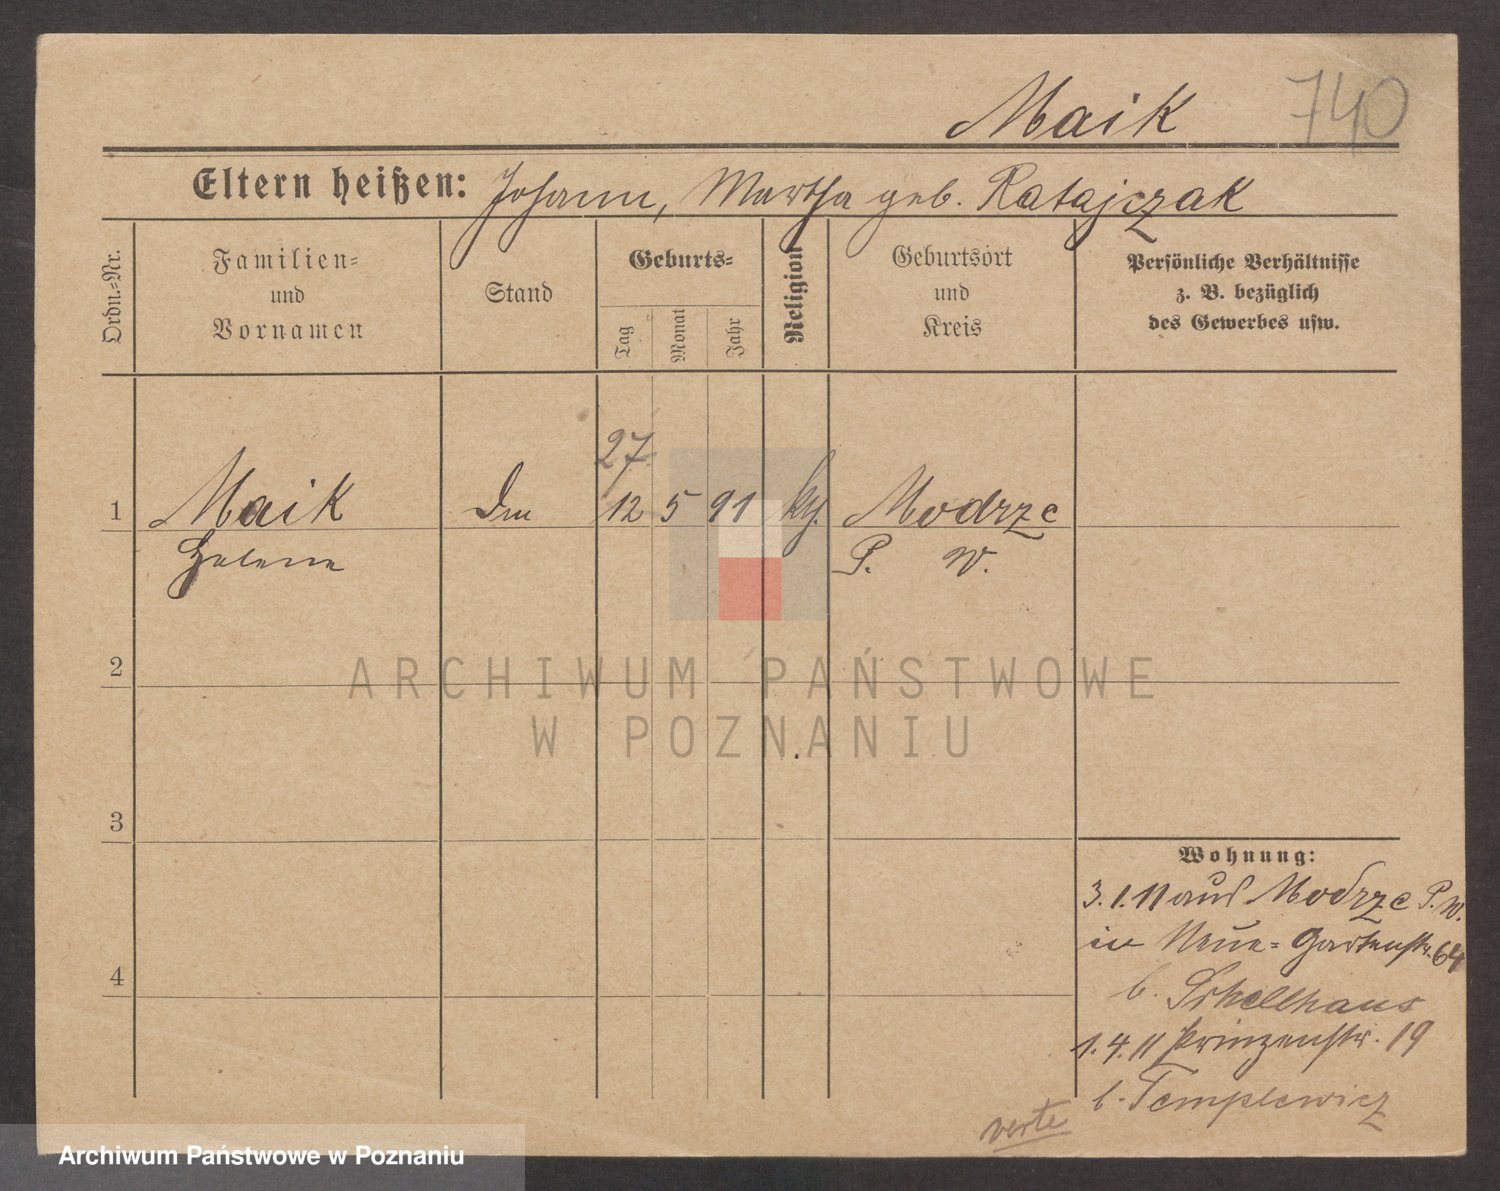 Maik 740
Eltern heißen: Johann, Martha geb. Ratajczak
Ordn.-Nr.
Familien-
und
Vornamen
Stand
Geburts-
Tag
Monat
Jahr
Religion
Geburtsort
und
Kreis
Persönliche Verhältnisse
z. B. bezüglich
des Gewerbes usw.
27
1 Maik 12 5 91 Modrze
Helene P. W.
2
ARCHIWUM PAŃSTWOWE
W POZNANIU
3
Wohnung:
3.1.11 aus Modrze P.W.
in Neue-Gartenstr. 64
4
b. Schellhaus
1.4.11 Prinzenstr. 19
b. Templewicz
verte
Archiwum Państwowe w Poznaniu